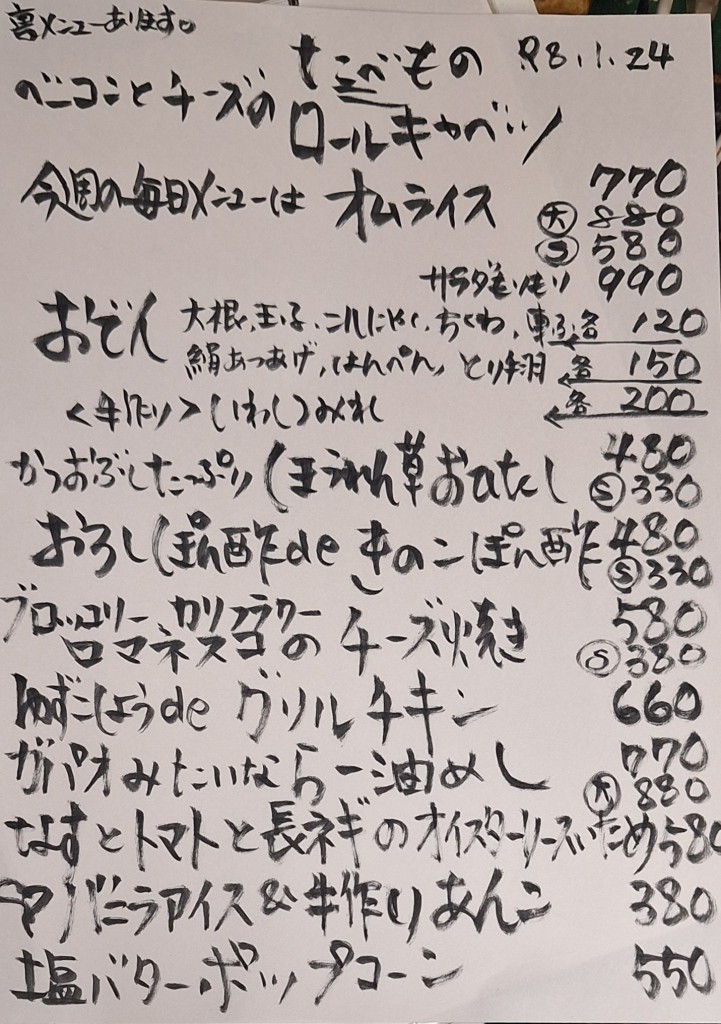 裏メニューあります。
たべもの R8.1.24
ベーコンとチーズのロールキャベツ
今週の毎日メニューは オムライス 770
大 880
S 580
サラダもいもり 990
おでん 大根、玉子、こんにゃく、ちくわ、車ふ各 120
絹あつあげ、はんぺん、とり手羽 各 150
<手作り>いわしつみれ 各 200
かつおぶしたっぷりほうれん草おひたし 480
S 330
おろしぽん酢de きのこぽん酢 480
S 330
ブロッコリー カリフラワー
ロマネスコの チーズ焼き 580
S 380
ゆずこしょうde グリルチキン 660
ガパオみたいならー油めし 770
大 880
なすとトマトと長ネギのオイスターソースいため 580
バニラアイス&手作りあんこ 380
塩バターポップコーン 550